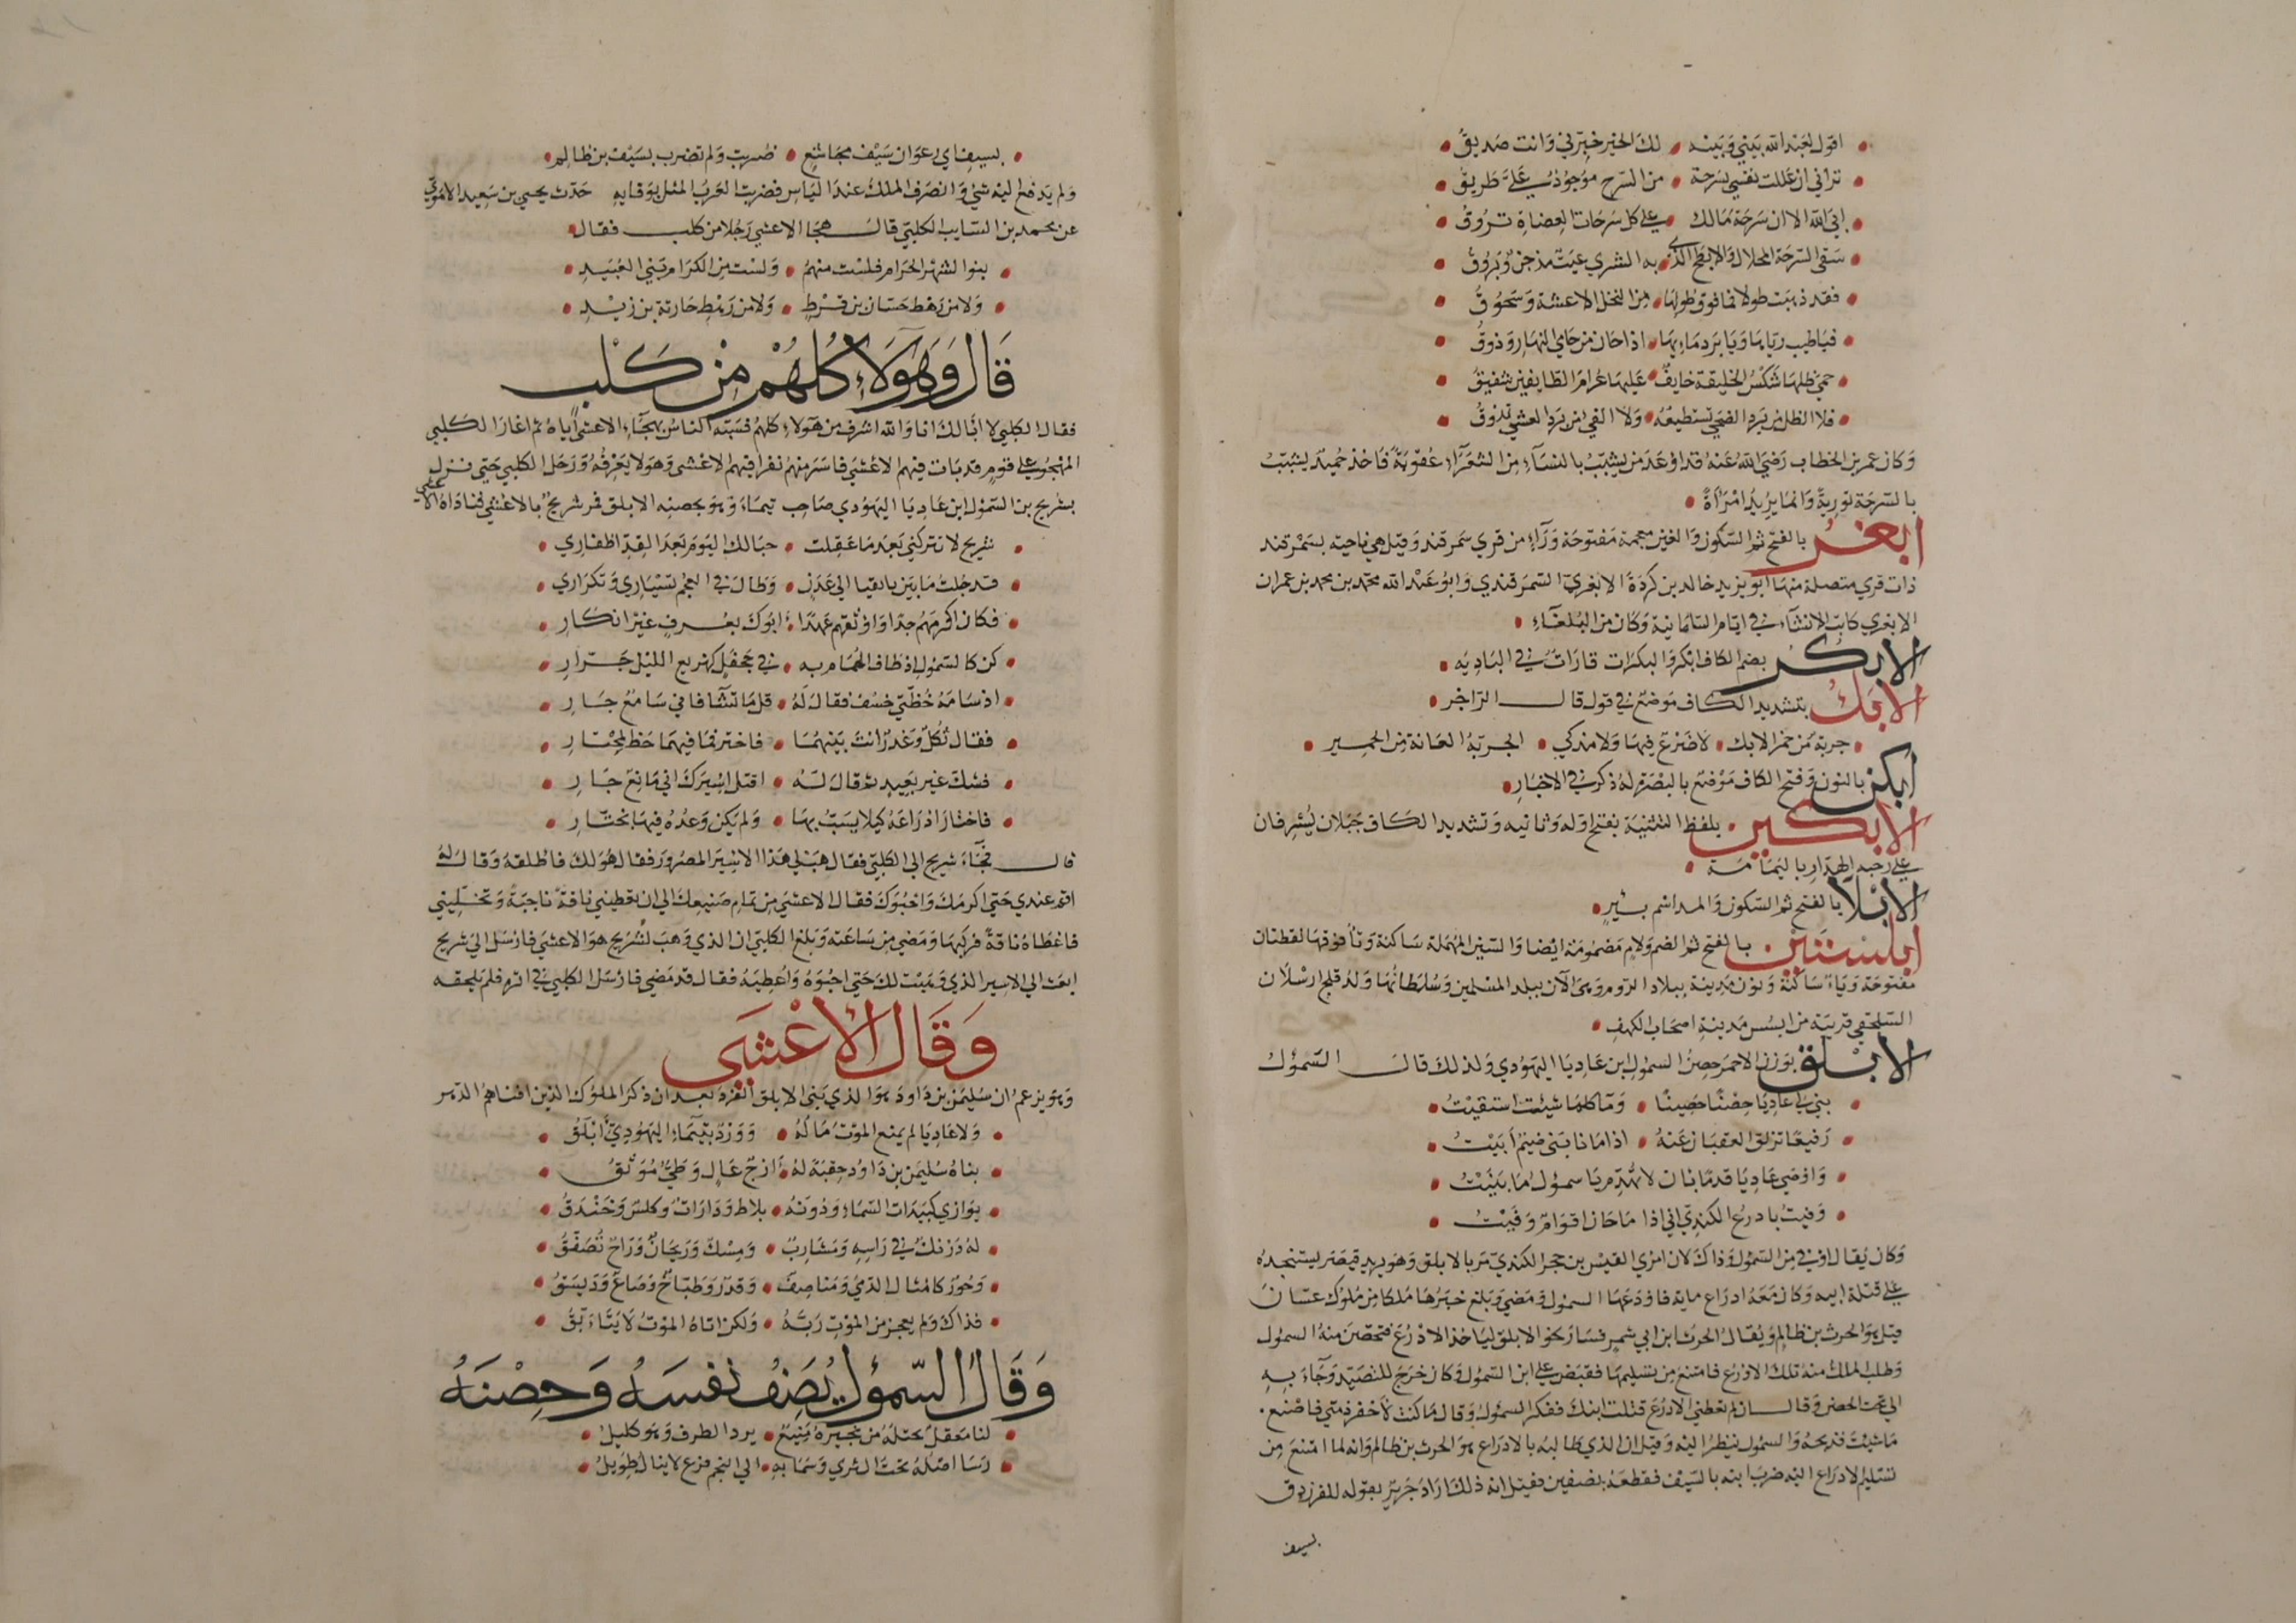 اقول لعبد الله بيني وبينه • لك الخير خبرني وانت صديق •
تراني ان عللت نفسي بسرحة • من السرح موجود علي طريق •
ابي الله الا ان سرحة مالك • علي كل سرحات العضاة تروق •
سقي السرحة المحلال والابطح الذي • به الشري غيث مدجن وبروق •
فقد ذهبت طولا فما فوق طولها • من النخل الا عشة وسحوق •
فياطيب رياها ويا برد مايها • اذا حان من حامي النهار وذوق •
حمي ظلها شكس الخليقة خايف • عليها غرام الطايفين شفيق •
فلا الظل من برد الضحي تستطيعه • ولا الفي من برد العشي تذوق •
وكان عمر بن الخطاب رضي الله عنه قد اوعد من يشبب بالنساء من الشعراء عقوبة فاخذ حميد يشبب
بالسرحة تورية وانما يريد امراة •
ابغر بالفتح ثم السكون والغين معجمة مفتوحة وراء من قري سمرقند وقيل هي ناحية بسمرقند
ذات قري متصلة منها ابو يزيد خالد بن كردة الابغري السمرقندي وابو عبد الله محمد بن محمد بن عمران
الابغري كاتب الانشاء في ايام السامانية وكان من البلغاء •
الابكر بضم الكاف ابكر والبكرات قارات في البادية •
الابك بتشديد الكاف موضع في قول قال الراجز •
• جربة من حمر الابك • لا ضرع فيها ولا مذكي • الجربة العانة من الحمير •
ابكن بالنون وفتح الكاف موضع بالبصرة له ذكر في الاخبار •
الابكين • بلفظ التثنية بفتح اوله وثانيه وتشديد الكاف جبلان يشرفان
علي رحبة الهدار باليمامة •
الابلا بالفتح ثم السكون والمد اسم بئر •
ابلستين • بالفتح ثم الضم ولام مضمومة ايضا والسين المهملة ساكنة وتاء فوقها نقطتان
مفتوحة وياء ساكنة ونون مدينة ببلاد الروم وهي الآن ببلد المسلمين وسلطانها ولد قلج ارسلان
السلجقي قريبة من ابسس مدينة اصحاب الكهف •
الابلق بوزن الاحمر حصن السموءل بن عاديا اليهودي ولذلك قال السموءل
• بني لي عاديا حصنا حصينا • وما كلما شيئت استقيت •
• رفيعا تزلق العقبان عنه • اذا ما نابني ضيم ابيت •
• واوصي عاديا قدما بان لا • تهدم يا سموءل ما بنيت •
• وفيت بادرع الكندي اني • اذا ما خان اقوام وفيت •
وكان يقال اوفي من السموءل وذاك لان امري القيس بن حجر الكندي مر بالابلق وهو يريد قيصر يستنجده
علي قتلة ابيه وكان معه ادراع ماية فاودعها السموءل ومضي وبلغ خبرها ملكا من ملوك غسان
قيل هو الحرث بن ظالم ويقال الحرث ابن ابي شمر فسار نحو الابلق ليأخذ الادرع فتحصن منه السموءل
وطلب الملك منه تلك الادرع فامتنع من تسليمها فقبض علي ابن السموءل وكان خرج للتصيد وجاء به
الي تحت الحصن وقال ان لم تعطني الادرع قتلت ابنك ففكر السموءل وقال ما كنت لاخفر ذمتي فاصنع •
ما شيئت فذبحه والسموءل ينظر اليه وقيل ان الذي طالبه بالادراع هو الحرث بن ظالم وانه لما امتنع من
تسليم الادراع اليه ضرب ابنه بالسيف فقطعه بنصفين فقيل انه ذلك اراد جرير بقوله للفرزدق
بسيف
• بسيف ابي رغوان سيف مجاشع • ضربت ولم تضرب بسيف بن ظالم •
ولم يدفع اليه شي وانصرف الملك عند الياس فضربت العرب المثل بوفايه حدث يحيي بن سعيد الاموي
عن محمد بن السايب الكلبي قال هجا الاعشي رجلا من كلب فقال •
• بنوا الشهر الحرام فلست منهم • ولست من الكرام بني العبيد •
• ولا من رهط حسان بن قرط • ولا من رهط حارثة بن زيد •
قال وهولاء كلهم من كلب
فقال الكلبي لا ابا لك انا والله اشرف من هولاء كلهم فسبه الناس بهجاء الاعشي اياه ثم اغار الكلبي
المهجو علي قوم قد بات فيهم الاعشي فاسر منهم نفرا فيهم الاعشي وهو لا يعرفه ورحل الكلبي حتي نزل
بشريح بن السموءل ابن عاديا اليهودي صاحب تيماء وهو بحصنه الابلق فمر شريح بالاعشي فناداه الاعشي
• شريح لا تتركني بعد ما علقت • حبالك اليوم بعد القد اظفاري •
• قد جلت ما بين بانقيا الي عدن • وطال في العجم تسياري وتكراري •
• فكان اكرمهم جدا واوثقهم عهدا • ابوك بعرف غير انكار •
• كن كالسموءل اذ طاف الهمام به • في جحفل كهزيع الليل جرار •
• اذ سامه خطتي خسف فقال له • قل ما تشا فاني سامع جار •
• فقال ثكل وغدر انت بينهما • فاختر فما فيهما حظ لمختار •
• فشك غير بعيد ثم قال له • اقتل اسيرك اني مانع جار •
• فاختار ادراعه كيلا يسب بها • ولم يكن وعده فيها بختار •
قال فجاء شريح الي الكلبي فقال هب لي هذا الاسير المضرور فقال هو لك فاطلقه وقال له
اقم عندي حتي اكرمك واحبوك فقال الاعشي من تمام صنيعك الي ان تعطيني ناقة ناجية وتخليني
فاعطاه ناقة فركبها ومضي من ساعته وبلغ الكلبي ان الذي وهب لشريح هو الاعشي فارسل الي شريح
ابعث الي الاسير الذي وهبت لك حتي احبوه واعطيه فقال قد مضي فارسل الكلبي في اثره فلم يلحقه
وقال الاعشي
وهو يزعم ان سليمن بن داود هو الذي بني الابلق الفرد بعد ان ذكر الملوك الذين افناهم الدهر
• ولا عاديا لم يمنع الموت ماله • وورد بتيماء اليهودي ابلق •
• بناه سليمن بن داود حقبة • له ازج عال وطي موثق •
• يوازي كبيدات السماء ودونه • بلاط ودارات وكلس وخندق •
• له درنك في راسه ومشارب • ومسك وريحان وراح تصفق •
• وحور كامثال الدمي ومناصف • وقدر وطباخ وصاع وديسق •
• فذاك ولم يعجز من الموت ربه • ولكن اتاه الموت لا يتأبق •
وقال السموءل يصف نفسه وحصنه
• لنا معقل يحتله من نجيره منيع • يرد الطرف وهو كليل •
• رسا اصله تحت الثري وسما به • الي النجم فرع لا ينال طويل •